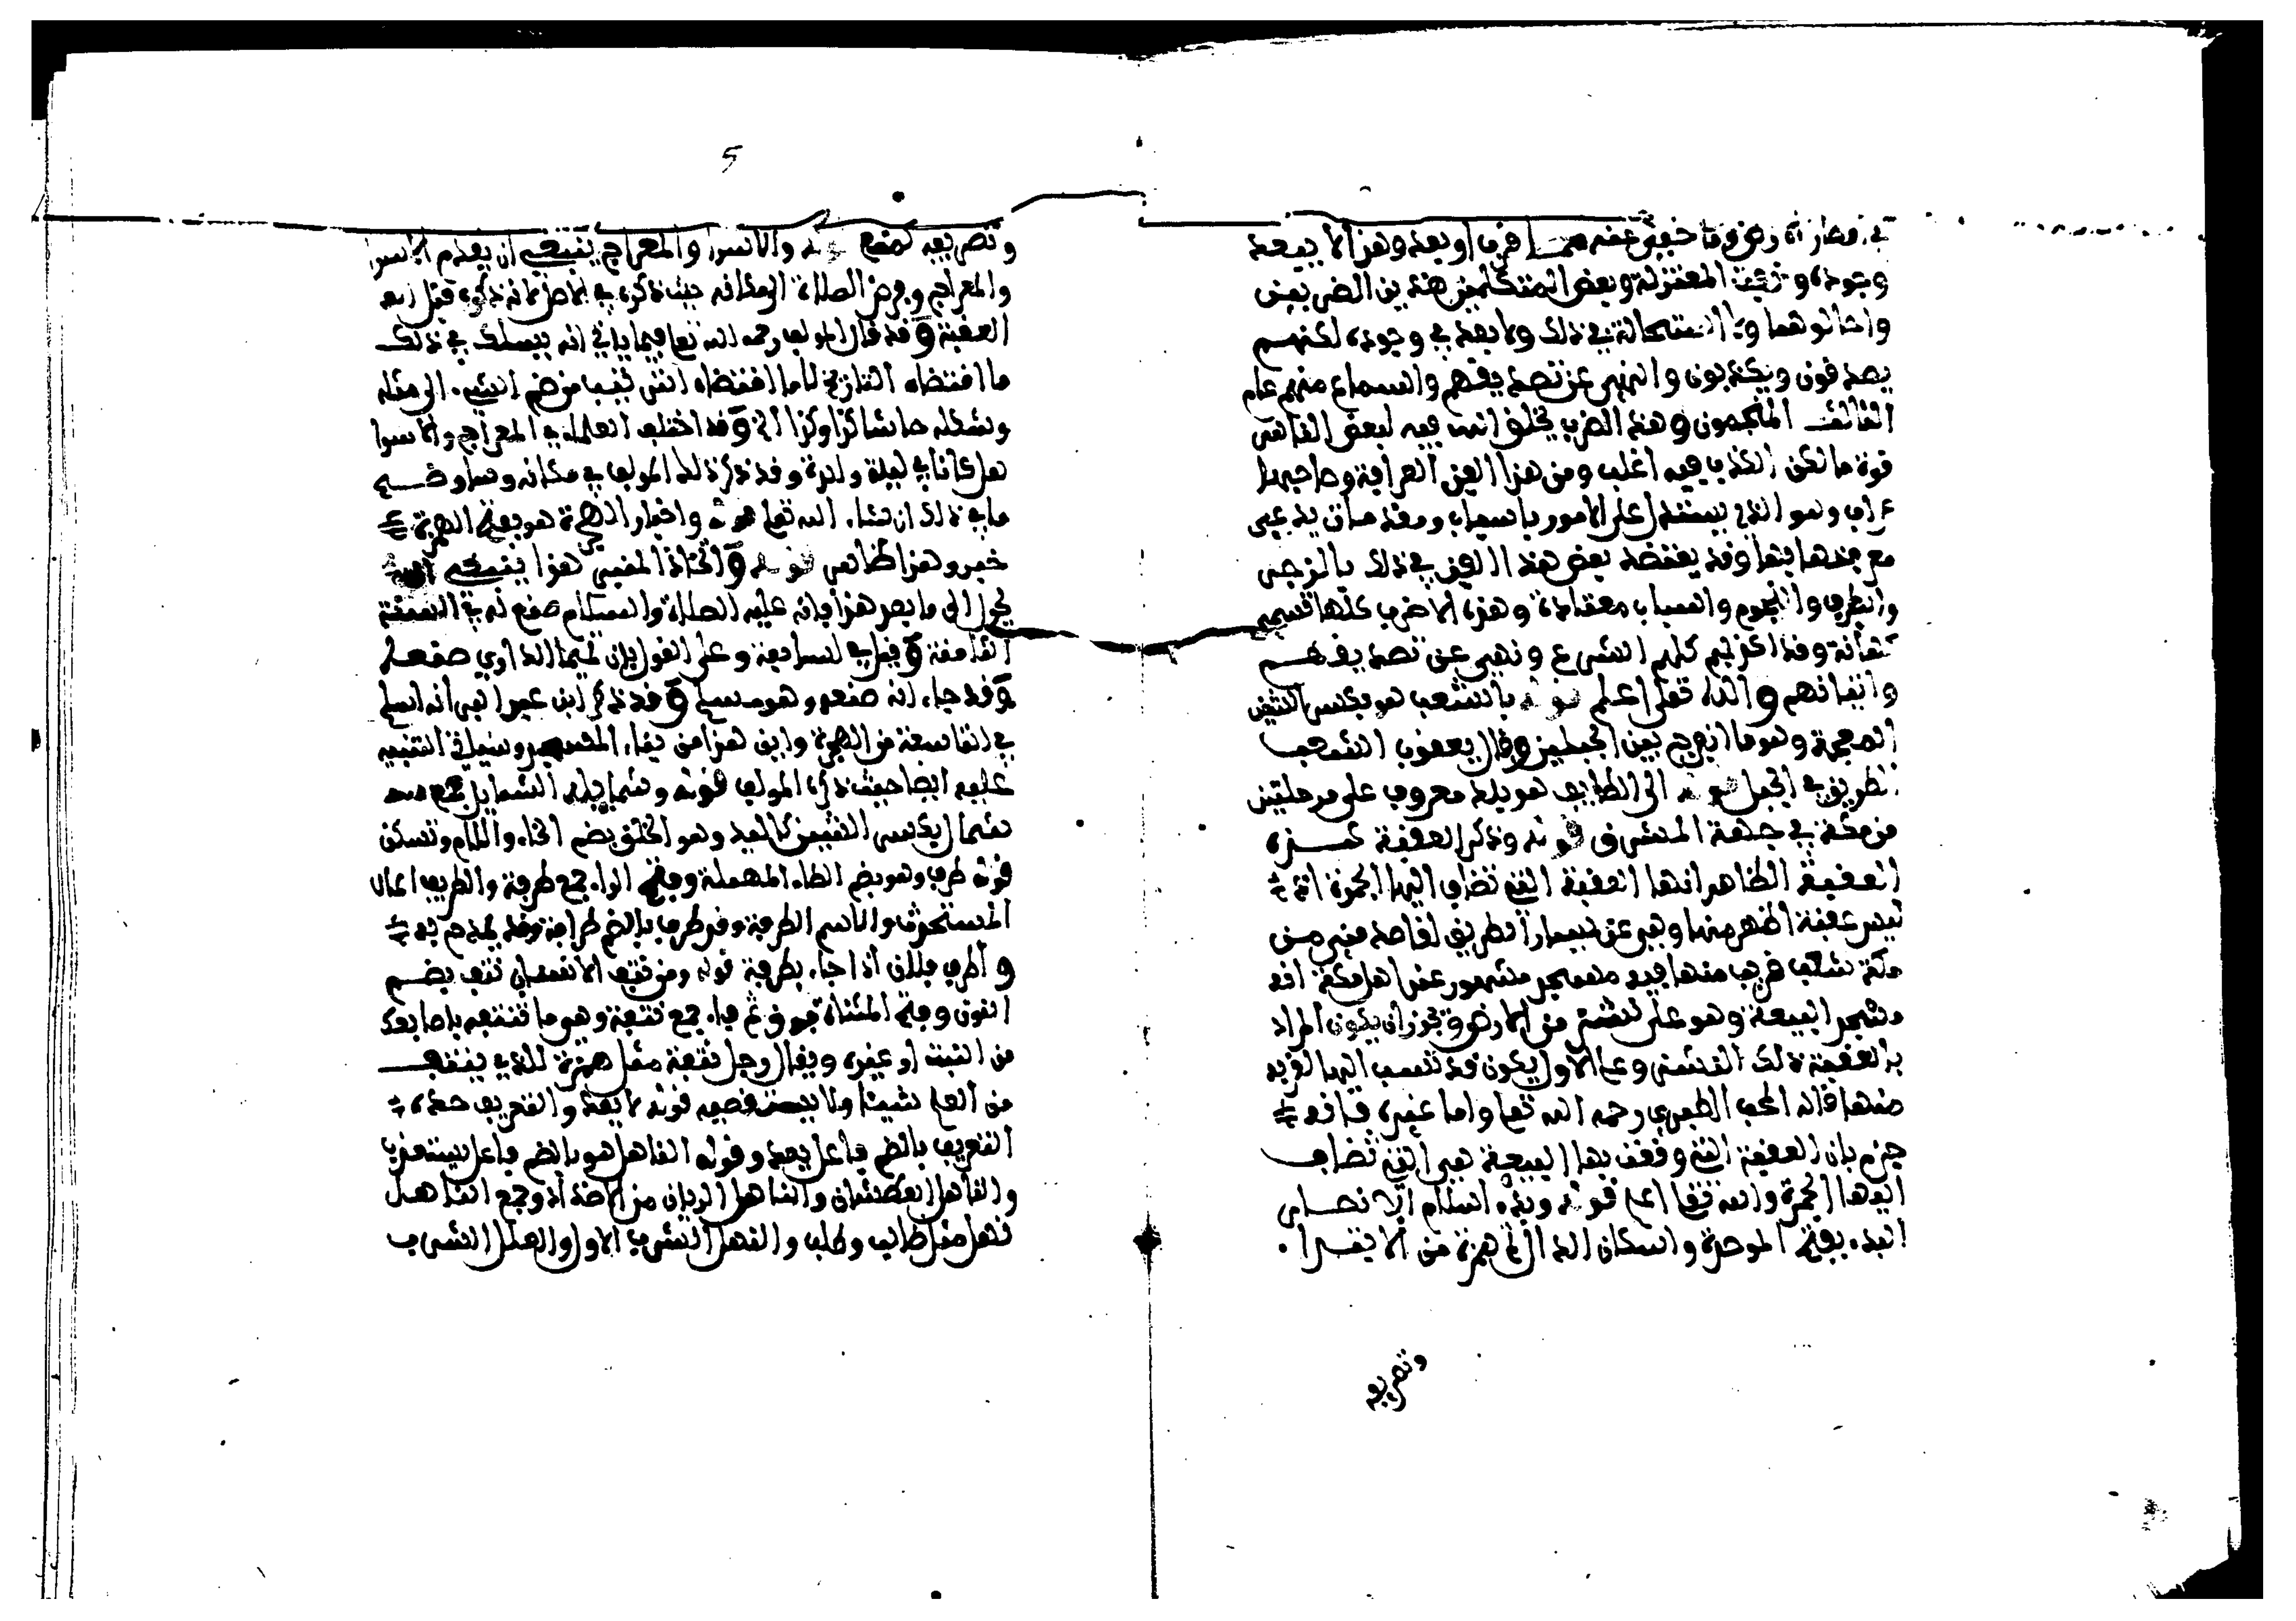 في اقطار الارض وما خفي عنه مما قرب او بعد وهذا لا يبعد
وجوده ونفت المعتزلة وبعض المتكلمين هذين الضربين
واحالوهما ولا استحالة في ذلك ولا بعد في وجوده لكنهم
يصدقون ويكذبون والنهي عن تصديقهم والسماع منهم عام
الثالث المنجمون وهذا الضرب يخلق الله فيه لبعض الناس
قوة ما لكن الكذب فيه اغلب ومن هذا الفن العرافة وصاحبها
عراف وهو الذي يستدل على الامور باسباب ومقدمات يدعي
معرفتها بها وقد يعتضد بعض هذا الفن في ذلك بالزجر
والطرق والنجوم واسباب معتادة وهذه الاضرب كلها تسمى
كهانة وقد اكذبهم كلهم الشرع ونهى عن تصديقهم
واتيانهم والله تعالى اعلم قوله بالشعب هو بكسر الشين
المعجمة وهو ما انفرج بين الجبلين وقال يعقوب الشعب
الطريق في الجبل قوله الى الطايف هو بلد معروف على مرحلتين
من مكة في جهة المشرق قوله وذكر العقبة هذه
العقبة الظاهر انها العقبة التي تضاف اليها الجمرة اذ
ليس عقبة اظهر منها وهي عن يسار الطريق لقاصد منى من
مكة شعب قريب منها فيه مسجد مشهور عند اهل مكة انه
مسجد البيعة وهو على نشز من الارض ويجوز ان يكون المراد
بالعقبة ذلك النشز وعلى الاول يكون قد نسب اليها لقربه
منها قاله المحب الطبري رحمه الله تعا واما غيره فانه
جزم بان العقبة التي وقعت بها البيعة هي التي تضاف
اليها الجمرة والله تعا اعلم قوله وبدء اسلام الانصار
البدء بفتح الموحدة واسكان الدال ثم همزة من الابتدا.
وتصريفه
5
وتصريفه كصنع قوله والاسرا والمعراج ينبغي ان يقدم الاسرا
والمعراج وفرض الصلاة الى مكانه حيث ذكره في الاصل لانه ذكره قبل
العقبة وقد قال المولف رحمه الله تعا فيما ياتي انه يسلك في ذلك
ما اقتضاه التاريخ لا ما اقتضاه انتهى من ضم الشيء الى مثله
وشكله حاشا كذا وكذا الخ وقد اختلف العلماء في المعراج والاسرا
هل كانا في ليلة واحدة وقد ذكر ذلك المولف في مكانه وساوضح
ما في ذلك ان شاء الله تعا قوله واخبار الهجرة هو بفتح الهمزة جمع
خبر وهذا ظاهر قوله واتخاذ المنبر هذا ينبغي
يحول الى ما بعد هذا فانه عليه الصلاة والسلام صنع له في السنة
الثامنة وقيل في السابعة وعلى القول بان تميما الداري صنعه
وقد جاء انه صنعه وهو مسلم وقد ذكر ابن عبد البر انه اسلم
في التاسعة من الهجرة واين هذا من بناء المسجد وسياتي التنبيه
عليه ايضا حيث ذكره المولف قوله وشمايله الشمايل جمع
شمال بكسر الشين كاليد وهو الخلق بضم الخاء واللام وتسكن
قوله طرف وهو بضم الطاء المهملة وفتح الراء جمع طرفة والطريف المال
المستحدث والاسم الطرفة وقد طرف بالضم طرافة وقد يمدح به
واطرف فلان اذا جاء بطرفة قوله ومن نتف الانتساب نتف بضم
النون وفتح المثناة فوق ثم فاء جمع نتفة وهو ما تنتفه باصابعك
من النبت او غيره ويقال رجل نتفة مثل همزة للذي ينتف
من العلم شيئا ولا يستقصيه قوله لا يعد والتعريف حده
التعريف بالضم فاعل يعد وقوله الناهل هو بالضم فاعل يستعذب
والناهل العطشان والناهل الريان من الاضداد وجمع الناهل
نهل مثل طالب وطلب والنهل الشرب الاول والعلل الشرب